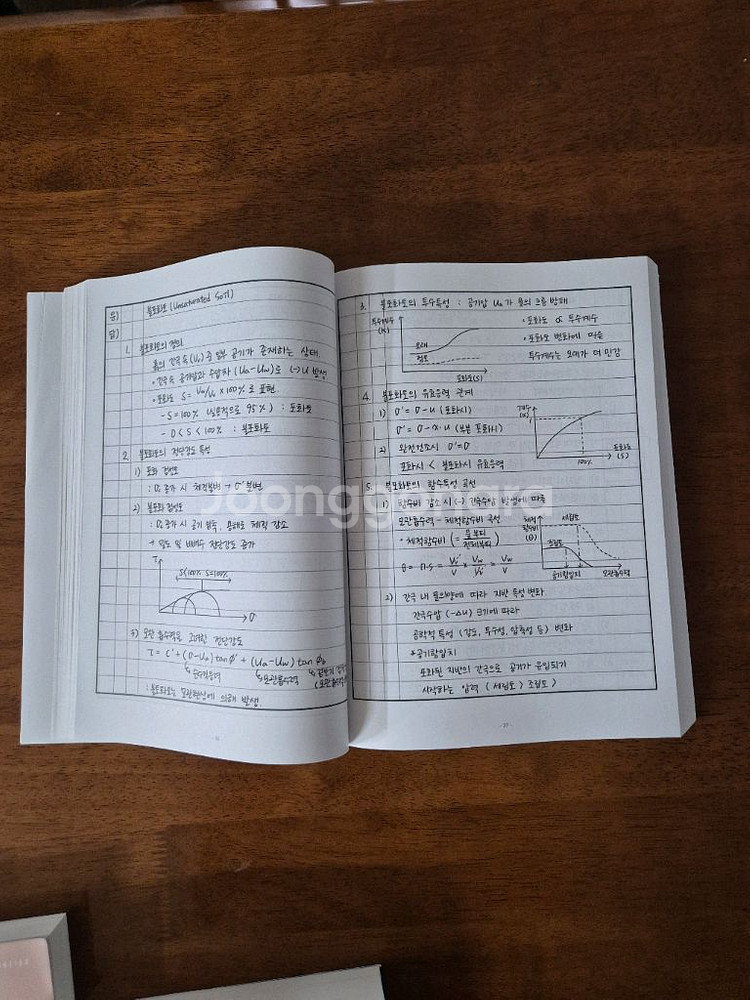 문)
불포화토 (Unsaturated Soil)
답)
1. 불포화토의 정의
흙의 간극 속(Vv) 중 일부 공기가 존재하는 상태.
• 간극 속 공기압과 수압차 (Ua-Uw)로 (-)U 발생
• 포화도 S = Vw/Vv × 100% 로 표현
- S=100% (실용적으로 95%) : 포화토
- 0 < S < 100% : 불포화토
2. 불포화토의 전단강도 특성
1) 포화 점성토
증가 시 체적불변 → σ' 불변
2) 불포화 점성토
증가 시 공기 압축, 용해로 체적 감소
→ 밀도 및 비배수 전단강도 증가
τ
S<100% S=100%
σ
3) 모관 흡수력을 고려한 전단강도
τ = c' + (σ-Ua) tanφ' + (Ua-Uw) tan φb
순수직응력
모관흡수력
: 불포화토는 모관현상에 의해 발생.
3. 불포화토의 투수특성 : 공기압 Ua가 물의 흐름 방해
투수계수
(K)
모래
점토
포화도(S)
• 포화도 ∝ 투수계수
• 포화도 변화에 따른
투수계수는 모래가 더 민감
4. 불포화토의 유효응력 관계
1) σ' = σ - u (포화시)
σ' = σ - x·u (부분 포화시)
2) 완전건조시 σ'=σ
포화시 < 불포화시 유효응력
계수
(x)
1
100%
포화도
(S)
5. 불포화토의 함수특성 곡선
1) 함수비 감소 시 (-) 간극수압 발생에 따른
모관흡수력 - 체적함수비 곡선
• 체적함수비 (= 물 부피 / 전체부피)
θ = n·s = Vv/V × Vw/Vv = Vw/V
체적
함수비
(θ)
세립토
조립토
공기함입치
모관흡수력
2) 간극 내 물의양에 따라 지반 특성변화
간극수압 (-Δu) 크기에 따라
공학적 특성 (강도, 투수성, 압축성 등) 변화
*공기함입치
포화된 지반의 간극으로 공기가 유입되기
시작하는 압력 (세립토 > 조립토)
Joonggonara